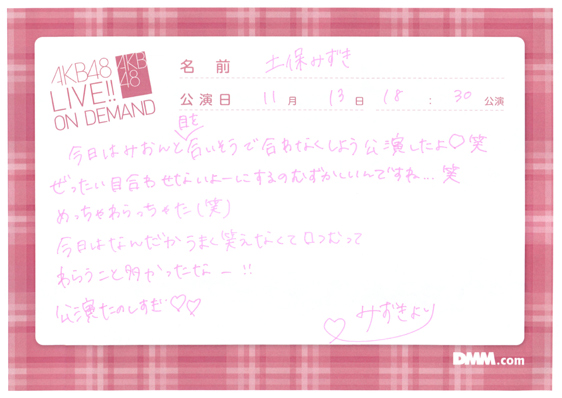 AKB48
LIVE!!
ON DEMAND
AKB
48
名 前 土保みずき
公演日 11 月 13 日 18 : 30 公演
目を
今日はみおんと合いそうで合わなくしよう公演したよ♡笑
ぜったい目合わせないよーにするのむずかしいんですね…笑
めっちゃわらっちゃた(笑)
今日はなんだかうまく笑えなくて口つむって
わらうこと多かったなー!!
公演たのしすぎ♡♡
みずきより
DMM.com